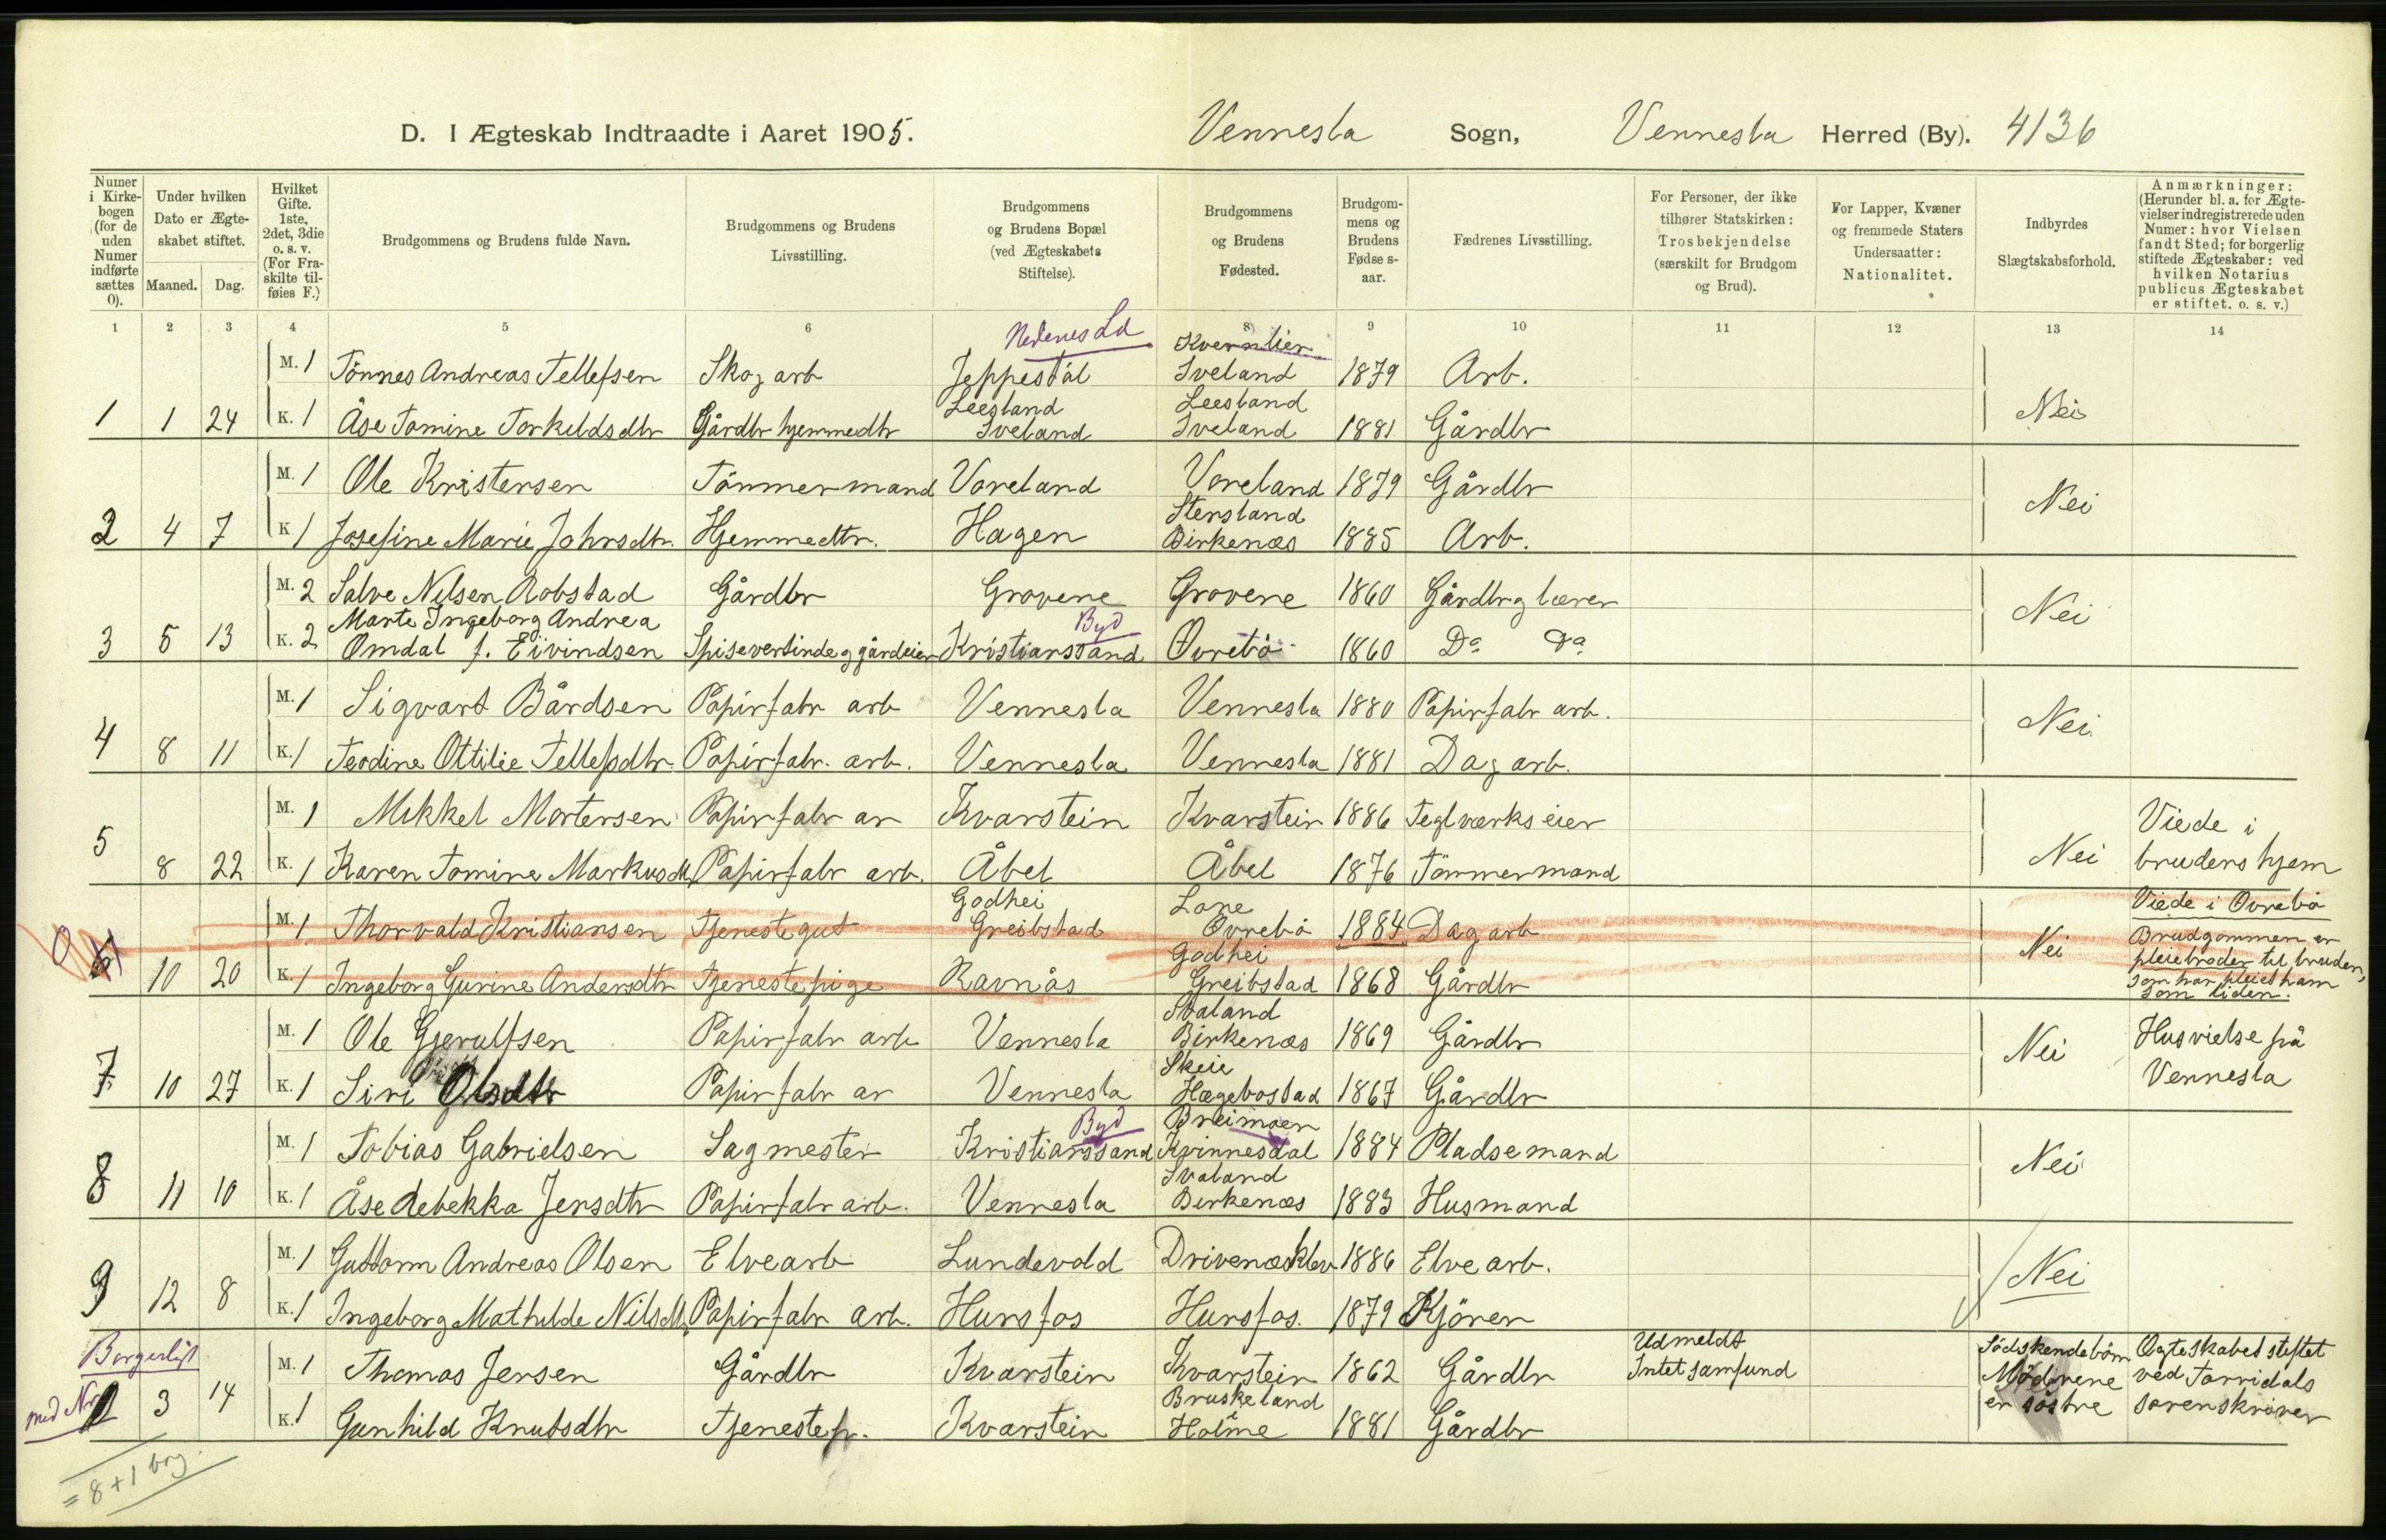 D. I Ægteskab Indtraadte i Aaret 1905. Vennesla Sogn, Vennesla Herred (By). 4136
Numer i Kirkebogen (for de uden Numer indførte sættes 0).
Under hvilken Dato er Ægteskabet stiftet.
Maaned. Dag.
Hvilket Gifte. 1ste, 2det, 3die o. s. v. (For Fraskilte tilføies F.)
Brudgommens og Brudens fulde Navn.
Brudgommens og Brudens Livsstilling.
Brudgommens og Brudens Bopæl (ved Ægteskabets Stiftelse).
Brudgommens og Brudens Fødested.
Brudgommens og Brudens Fødselsaar.
Fædrenes Livsstilling.
For Personer, der ikke tilhører Statskirken: Trosbekjendelse (særskilt for Brudgom og Brud).
For Lapper, Kvæner og fremmede Staters Undersaatter: Nationalitet.
Indbyrdes Slægtskabsforhold.
Anmærkninger: (Herunder bl. a. for Ægtevielser indregistrerede uden Numer: hvor Vielsen fandt Sted; for borgerlig stiftede Ægteskaber: ved hvilken Notarius publicus Ægteskabet er stiftet. o. s. v.)
1 2 3 4 5 6 7 8 9 10 11 12 13 14
Nedenes Ld Kvernlier
M. 1 Tönnes Andreas Tellefsen Skog arb Jeppestöl Iveland 1879 Arb.
Leesland Leesland
1 1 24 K. 1 Åse Tomine Torkeldsdtr Gårdbr hjemmedtr Iveland Iveland 1881 Gårdbr Nei
M. 1 Ole Kristensen Tömmermand Voreland Voreland 1879 Gårdbr
Stensland
2 4 7 K. 1 Josefine Marie Johnsdtr. Hjemmedtr. Hagen Birkenæs 1885 Arb. Nei
M. 2 Salve Nilsen Robstad Gårdbr Grovene Grovene 1860 Gårdbr og lærer
Marte Ingeborg Andrea Byd
3 5 13 K. 2 Omdal f. Eivindsen Spisevertinde og gårdeier Kristianssand Øvrebö 1860 Do Do Nei
M. 1 Sigvart Bårdsen Papirfabr arb Vennesla Vennesla 1880 Papirfabr arb.
4 8 11 K. 1 Teodine Ottilie Tellefsdtr. Papirfabr. arb. Vennesla Vennesla 1881 Dag arb. Nei.
M. 1 Mikkel Mortensen Papirfabr ar Kvarstein Kvarstein 1886 Teglværkseier Viede i
5 8 22 K. 1 Karen Tomine Markusdtr Papirfabr arb. Åbel Åbel 1876 Tömmermand Nei brudens hjem
Godhei Lone Viede i Øvrebö
M. 1 Thorvald Kristiansen Tjenestegut Greibstad Øvrebö 1884 Dag arb Brudgommen er
Godhei pleiebroder til bruden,
0 10 20 K. 1 Ingeborg Gurine Andersdtr Tjenestepige Ravnås Greibstad 1868 Gårdbr Nei som har pleiet ham
som liden.
Svaland
M. 1 Ole Gjerulfsen Papirfabr arb Vennesla Birkenæs 1869 Gårdbr Husvielse på
Skeie
7 10 27 K. 1 Siri Olsdtr Papirfabr ar Vennesla Hægebostad 1867 Gårdbr Nei Vennesla
Byd Breimoen
M. 1 Tobias Gabrielsen Sagmester Kristianssand Kvinnesdal 1884 Pladsemand
Svaland
8 11 10 K. 1 Åse Rebekka Jensdtr Papirfabr arb. Vennesla Birkenæs 1883 Husmand Nei
M. 1 Guttorm Andreas Olsen Elvearb Lundevold Drivenesklev 1886 Elve arb.
9 12 8 K. 1 Ingeborg Mathilde Nilsdtr Papirfabr arb. Hunsfos Hunsfos. 1879 Kjörer Nei
Borgerligt Udmeldt Södskendebörn Ægteskabet stiftet
M. 1 Thomas Jensen Gårdbr Kvarstein Kvarstein 1862 Gårdbr Intet samfund Mödrene ved Torridals
Bruskeland
med Nr 3 14 K. 1 Gunhild Knutsdtr Tjenestep. Kvarstein Holme 1881 Gårdbr er söstre sorenskriver
= 8 + 1 borg